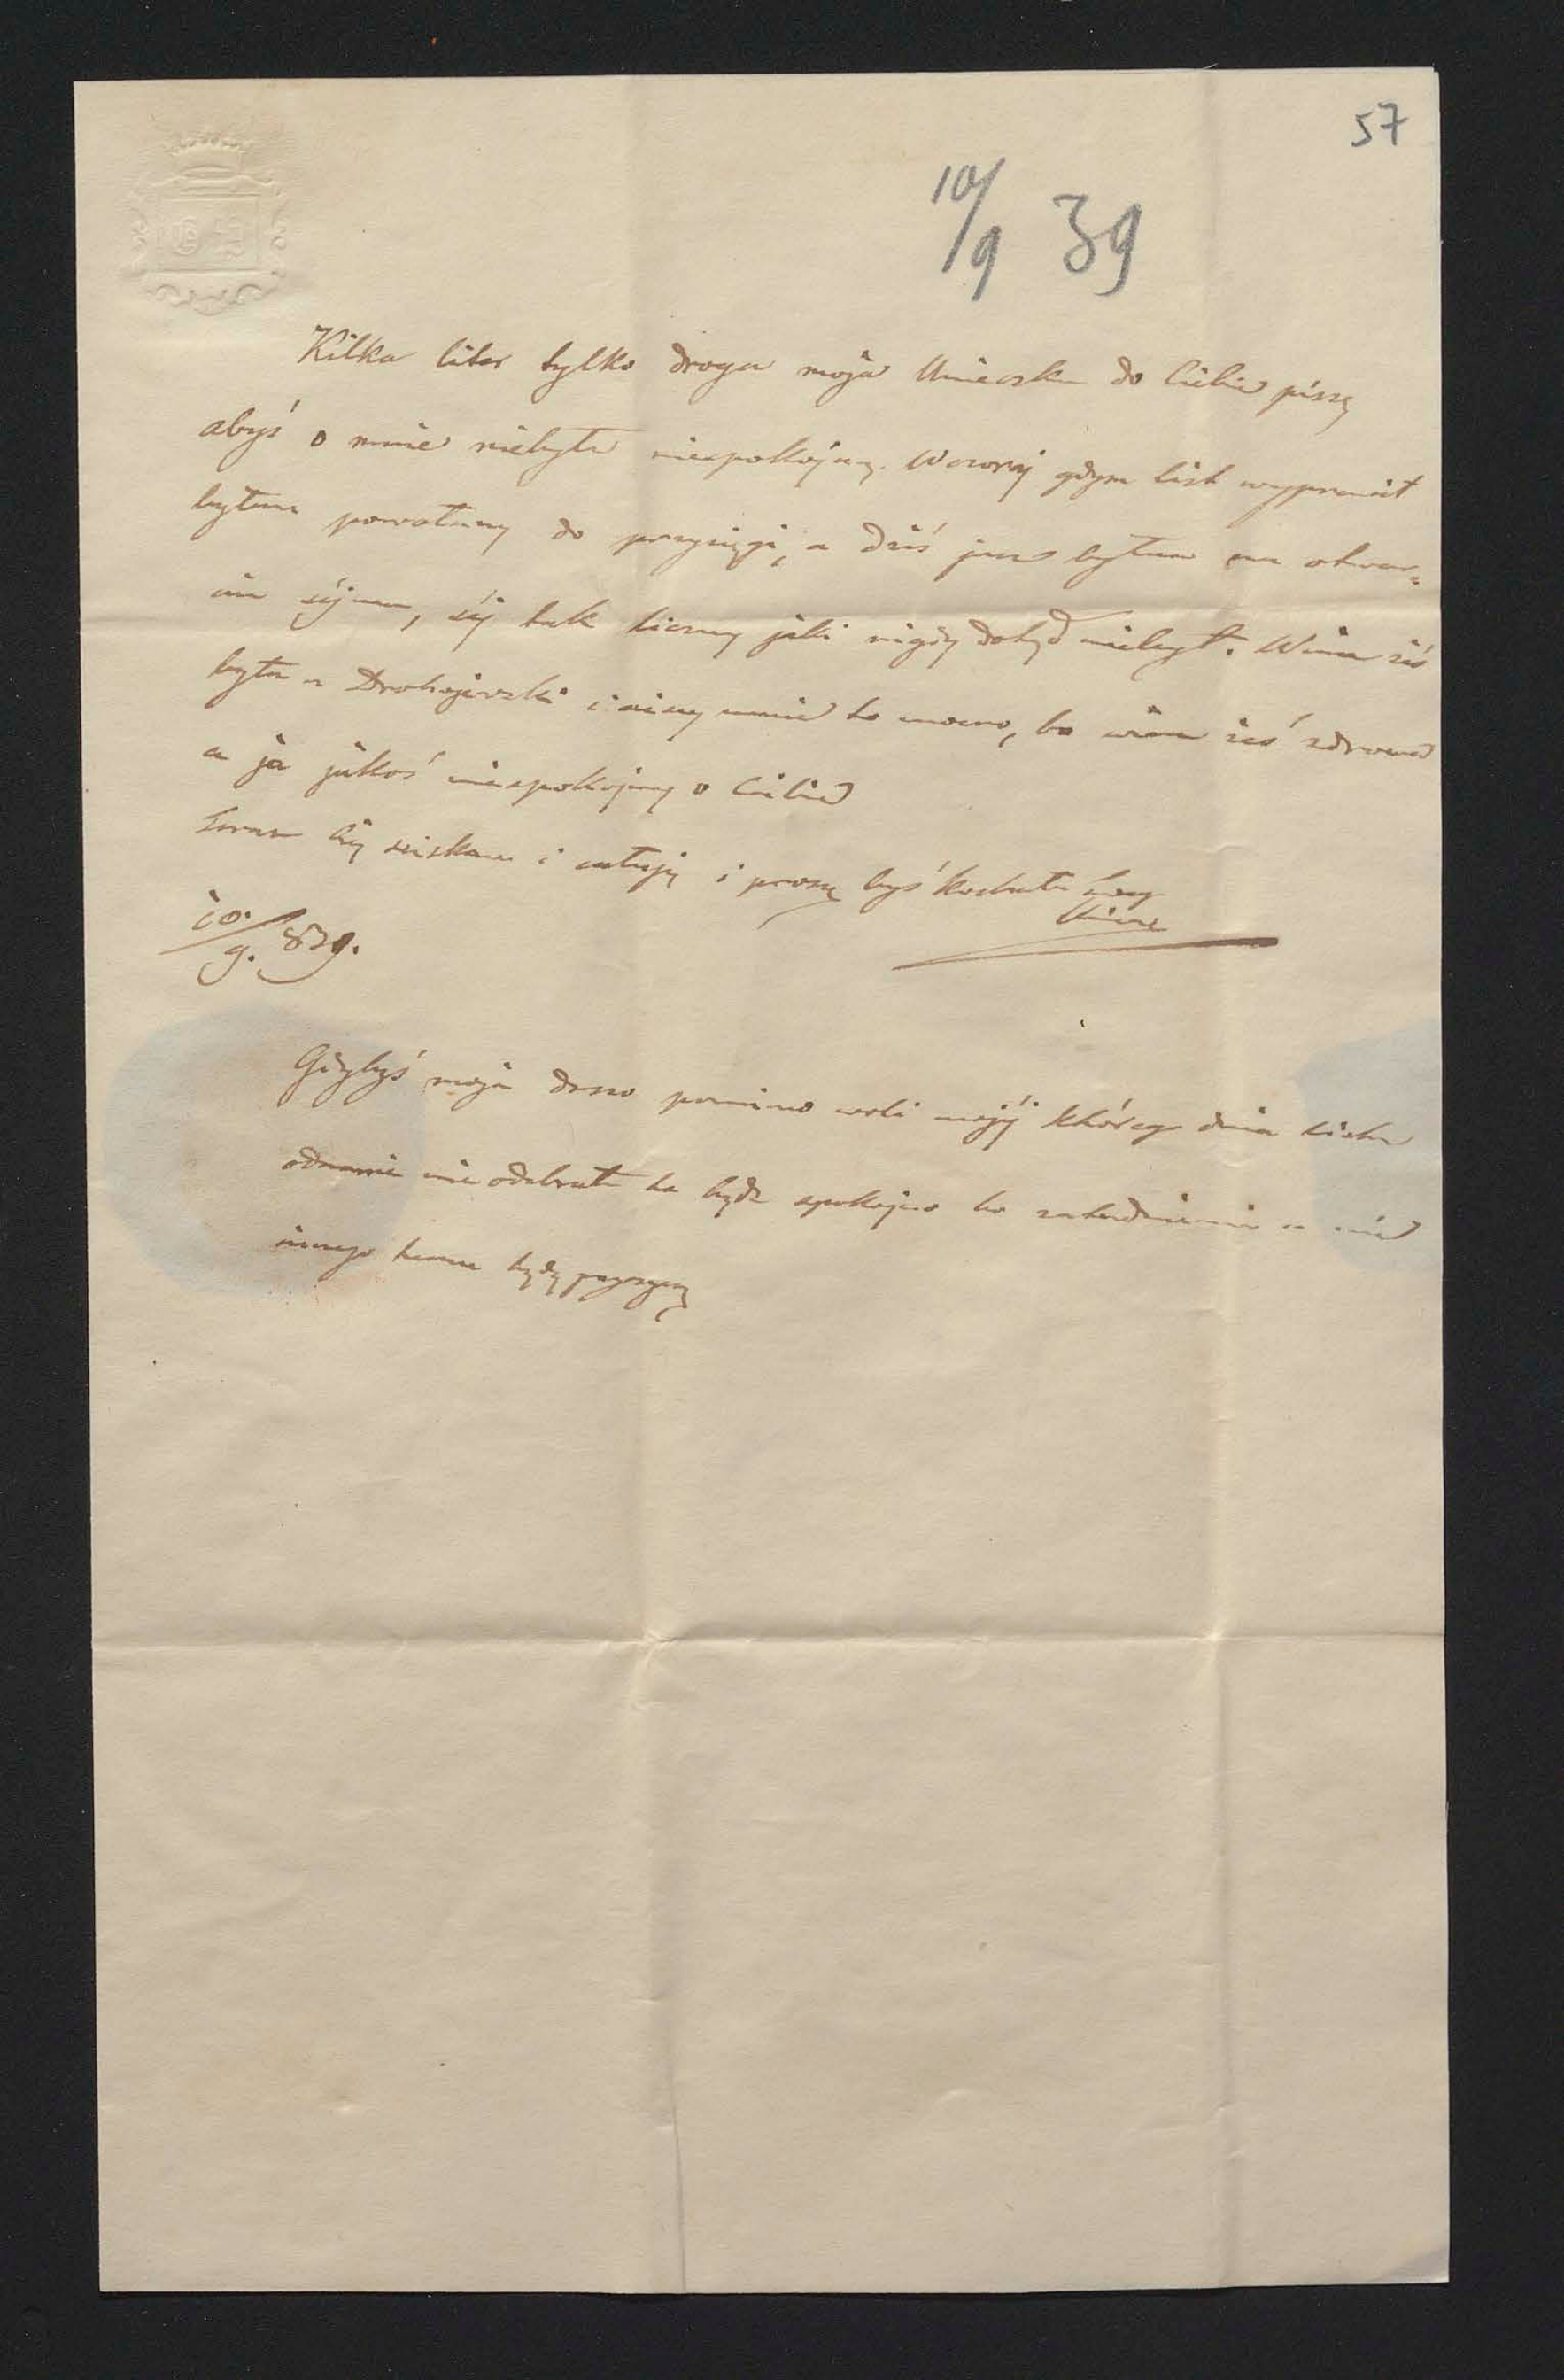 57
10/9 39
Kilka liter tylko droga moja Unieczku do Ciebie piszę
abyś o mnie niebyła niespokojną. Wczoraj gdym list wyprawił
byłem powołany do przysięgi, a dziś już byłem na otwar=
ciu séjmu, séj tak liczny jaki nigdy dotąd niebył. Wiem żeś
była u Drohojewski i cieszy mnie to mocno, bo wiem żeś zdrowa
a ja jakoś niespokojny o Ciebie
Zaraz Cię ściskam i całuję i proszę byś kochała
10./9. 839.
Gdybyś moja duszo pomimo woli mojéj którego dnia listu
odemnie nie odebrała to bądź spokojna bo zatrudnienie a nic
innego temu będą przyczyną